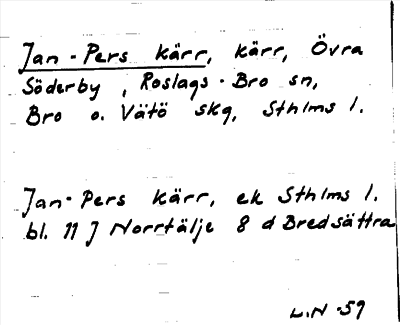 Jan-Pers kärr, kärr, Övra
Söderby, Roslags-Bro sn,
Bro o. Vätö skg, Sthlms l.
Jan-Pers kärr, ek Sthlms l.
bl. 11 J Norrtälje 8 d Bredsättra
L.N -59